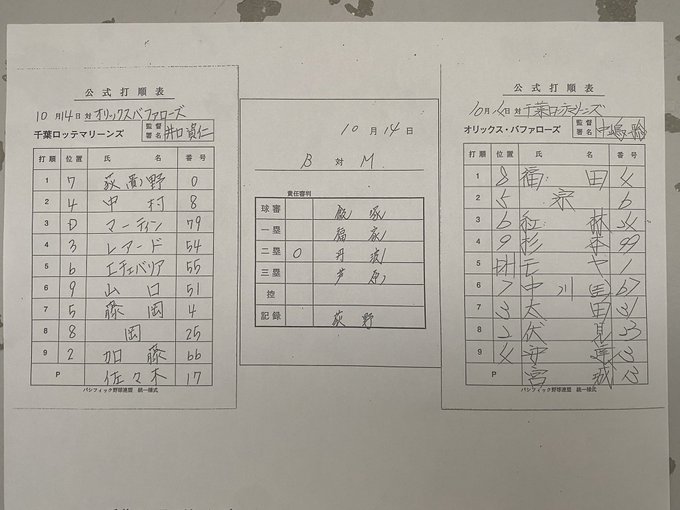 公式打順表
10月14日対オリックスバファローズ
千葉ロッテマリーンズ 監督署名 井口資仁
打順 位置 氏名 番号
1 7 荻野 0
2 4 中村 8
3 D マーティン 79
4 3 レアード 54
5 6 エチェバリア 55
6 9 山口 51
7 5 藤岡 4
8 8 岡 25
9 2 加藤 66
P 佐々木 17
パシフィック野球連盟 統一様式
10月14日
B 対 M
責任審判
球審 飯塚
一塁 福家
二塁 〇 丹波
三塁 芦原
控
記録 荻野
公式打順表
10月14日対千葉ロッテマリーンズ
オリックス・バファローズ 監督署名 中嶋聡
打順 位置 氏名 番号
1 8 福田 4
2 5 宗 6
3 6 紅林 24
4 9 杉本 99
5 DH モヤ 1
6 7 中川圭 67
7 3 太田 31
8 2 伏見 23
9 4 安達 3
P 宮城 13
パシフィック野球連盟 統一様式